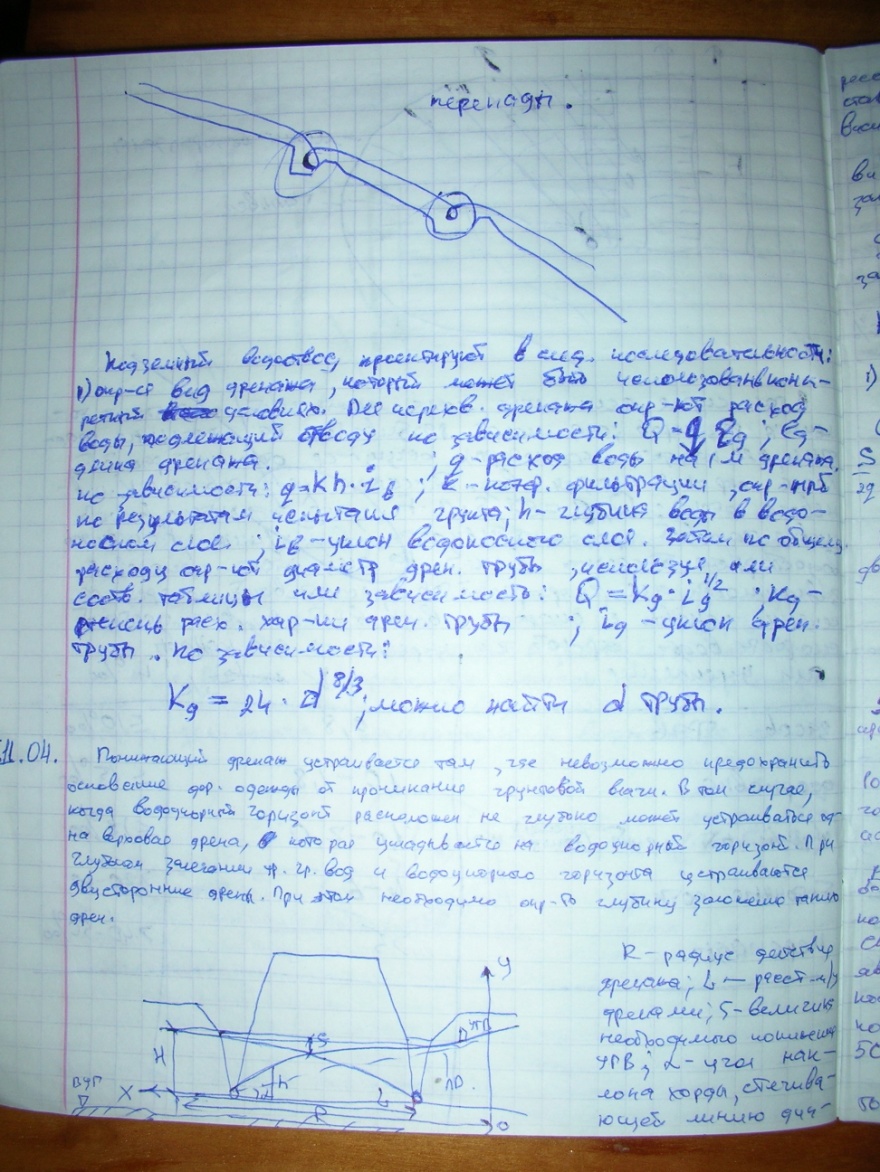 перепады.
Подземный водоотвод проектируют в след. последовательности:
1) опр-ся вид дренажа, который может быть использован в конк-
ретных условиях. Для перехв. дренажа опр-ют расход
воды, подлежащий отводу по зависимости: Q = q·ℓg ; ℓg -
длина дренажа. ; q - расход воды на 1м дренажа
по зависимости: q = kh·iв ; k - коэф. фильтрации, опр-
по результатам испытания грунта; h - глубина воды в водо-
носном слое ; iв - уклон водоносного слоя. Затем по общему
расходу опр-ют диаметр дрен. трубы, используя, или
соотв. таблицы или зависимость: Q = Kg·ig^1/2 ; Kg -
расх. хар-ки дрен. трубы ; ig - уклон дрен.
трубы. По зависимости:
Kg = 24·d^8/3 ; можно найти d трубы.
11.04. Понижающий дренаж устраивается там, где невозможно предохранить
основание дор. одежды от проникание грунтовой влаги. В том случае,
когда водоупорный горизонт расположен не глубоко может устраиваться од-
на дрена, которая укладывается на водоупорный горизонт. При
глубоком залегании ур. гр. вод и водоупорного горизонта устраиваются
двусторонние дрены. При этом необходимо опр-ть глубину заложения таких
дрен.
R - радиус действия
дренажа; L - расст. м/у
дренами; S - величина
необходимого понижения
УГВ; α - угол нак-
лона хорды, стягива-
ющей линию
y
УГВ
S
H
h
ВУГ
x
R
L
0